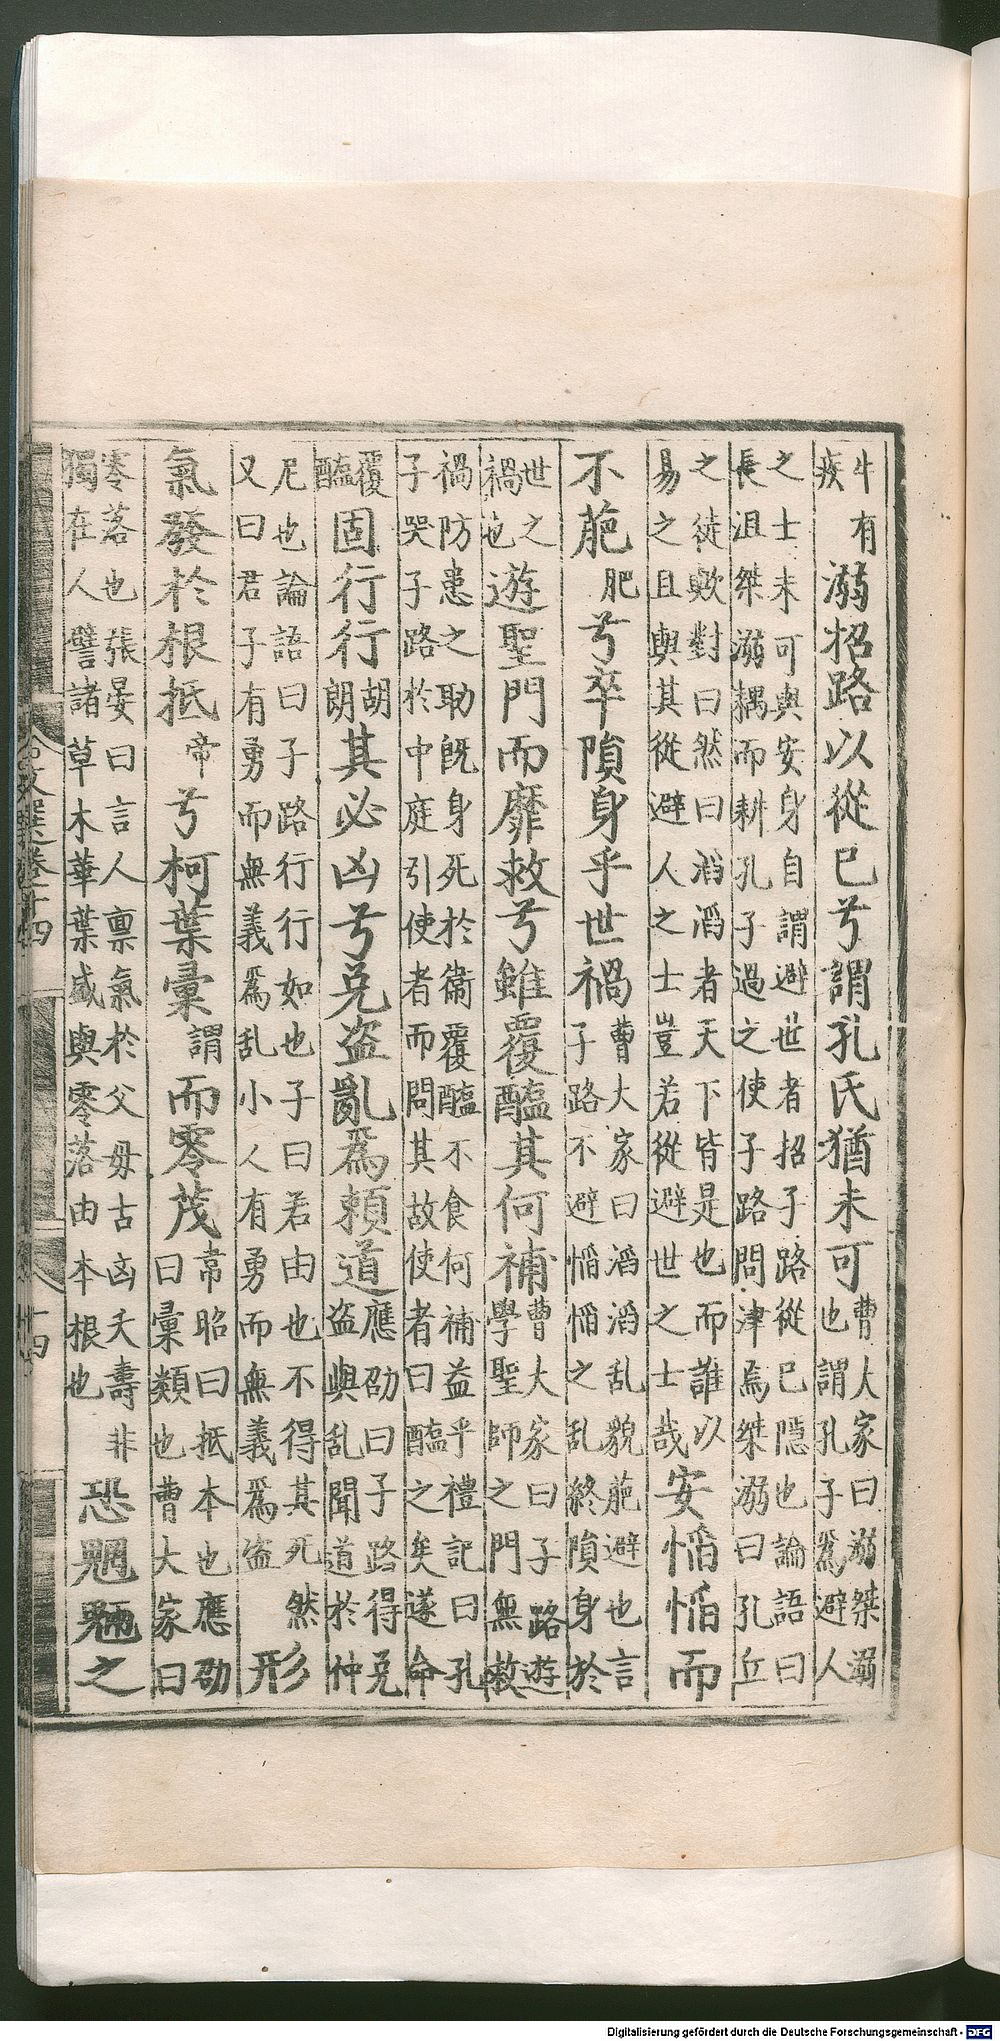 牛有疾溺招路以從巳兮謂孔氏猶未可曹大家曰溺桀溺也謂孔子爲避人
之士未可與安身自謂避世者招子路從巳隱也論語曰長沮桀溺耦而耕孔子過之使子路問津焉桀溺曰孔丘
之徒歟對曰然曰滔滔者天下皆是也而誰以易之且與其從避人之士豈若從避世之士哉安慆慆而
不萉肥兮卒隕身乎世禍曹大家曰滔滔乱貌萉避也言子路不避慆慆之乱終隕身於
世之禍也遊聖門而靡救兮雖覆醢其何補曹大家曰子路遊學聖師之門無救
禍防患之助旣身死於衞覆醢不食何補益乎禮記曰孔子哭子路於中庭引使者而問其故使者曰醢之矣遂命
覆醢固行行胡朗其必凶兮免盗亂爲頼道應劭曰子路得免盗與乱聞道於仲
尼也論語曰子路行行如也子曰若由也不得其死然又曰君子有勇而無義爲乱小人有勇而無義爲盗形
氣發於根抵帝兮柯葉彙謂而零茂韋昭曰抵本也應劭曰彙類也曹大家曰
零落也張晏曰言人禀氣於父母古凶夭壽非獨在人譬諸草木華葉盛與零落由本根也恐魍魎之
文選卷十四
十四
Digitalisierung gefördert durch die Deutsche Forschungsgemeinschaft - DFG